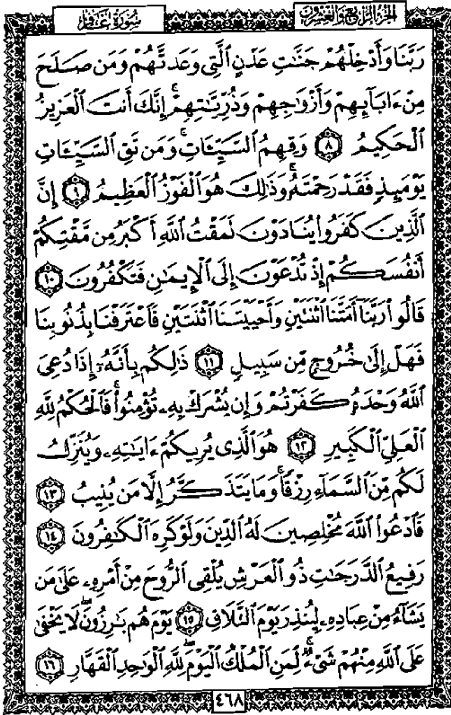 سُورَةُ غَافِر
الجزء الرابع والعشرون
رَبَّنَا وَأَدْخِلْهُمْ جَنَّٰتِ عَدْنٍ ٱلَّتِى وَعَدتَّهُمْ وَمَن صَلَحَ
مِنْ ءَابَآئِهِمْ وَأَزْوَٰجِهِمْ وَذُرِّيَّٰتِهِمْ ۚ إِنَّكَ أَنتَ ٱلْعَزِيزُ
ٱلْحَكِيمُ ٨ وَقِهِمُ ٱلسَّيِّـَٔاتِ ۚ وَمَن تَقِ ٱلسَّيِّـَٔاتِ
يَوْمَئِذٍ فَقَدْ رَحِمْتَهُۥ ۚ وَذَٰلِكَ هُوَ ٱلْفَوْزُ ٱلْعَظِيمُ ٩ إِنَّ
ٱلَّذِينَ كَفَرُوا۟ يُنَادَوْنَ لَمَقْتُ ٱللَّهِ أَكْبَرُ مِن مَّقْتِكُمْ
أَنفُسَكُمْ إِذْ تُدْعَوْنَ إِلَى ٱلْإِيمَٰنِ فَتَكْفُرُونَ ١٠
قَالُوا۟ رَبَّنَآ أَمَتَّنَا ٱثْنَتَيْنِ وَأَحْيَيْتَنَا ٱثْنَتَيْنِ فَٱعْتَرَفْنَا بِذُنُوبِنَا
فَهَلْ إِلَىٰ خُرُوجٍ مِّن سَبِيلٍ ١١ ذَٰلِكُم بِأَنَّهُۥٓ إِذَا دُعِىَ
ٱللَّهُ وَحْدَهُۥ كَفَرْتُمْ ۖ وَإِن يُشْرَكْ بِهِۦ تُؤْمِنُوا۟ ۚ فَٱلْحُكْمُ لِلَّهِ
ٱلْعَلِىِّ ٱلْكَبِيرِ ١٢ هُوَ ٱلَّذِى يُرِيكُمْ ءَايَٰتِهِۦ وَيُنَزِّلُ
لَكُم مِّنَ ٱلسَّمَآءِ رِزْقًا ۚ وَمَا يَتَذَكَّرُ إِلَّا مَن يُنِيبُ ١٣
فَٱدْعُوا۟ ٱللَّهَ مُخْلِصِينَ لَهُ ٱلدِّينَ وَلَوْ كَرِهَ ٱلْكَٰفِرُونَ ١٤
رَفِيعُ ٱلدَّرَجَٰتِ ذُو ٱلْعَرْشِ يُلْقِى ٱلرُّوحَ مِنْ أَمْرِهِۦ عَلَىٰ مَن
يَشَآءُ مِنْ عِبَادِهِۦ لِيُنذِرَ يَوْمَ ٱلتَّلَاقِ ١٥ يَوْمَ هُم بَٰرِزُونَ ۖ لَا يَخْفَىٰ
عَلَى ٱللَّهِ مِنْهُمْ شَىْءٌ ۚ لِّمَنِ ٱلْمُلْكُ ٱلْيَوْمَ ۖ لِلَّهِ ٱلْوَٰحِدِ ٱلْقَهَّارِ ١٦
٤٦٨